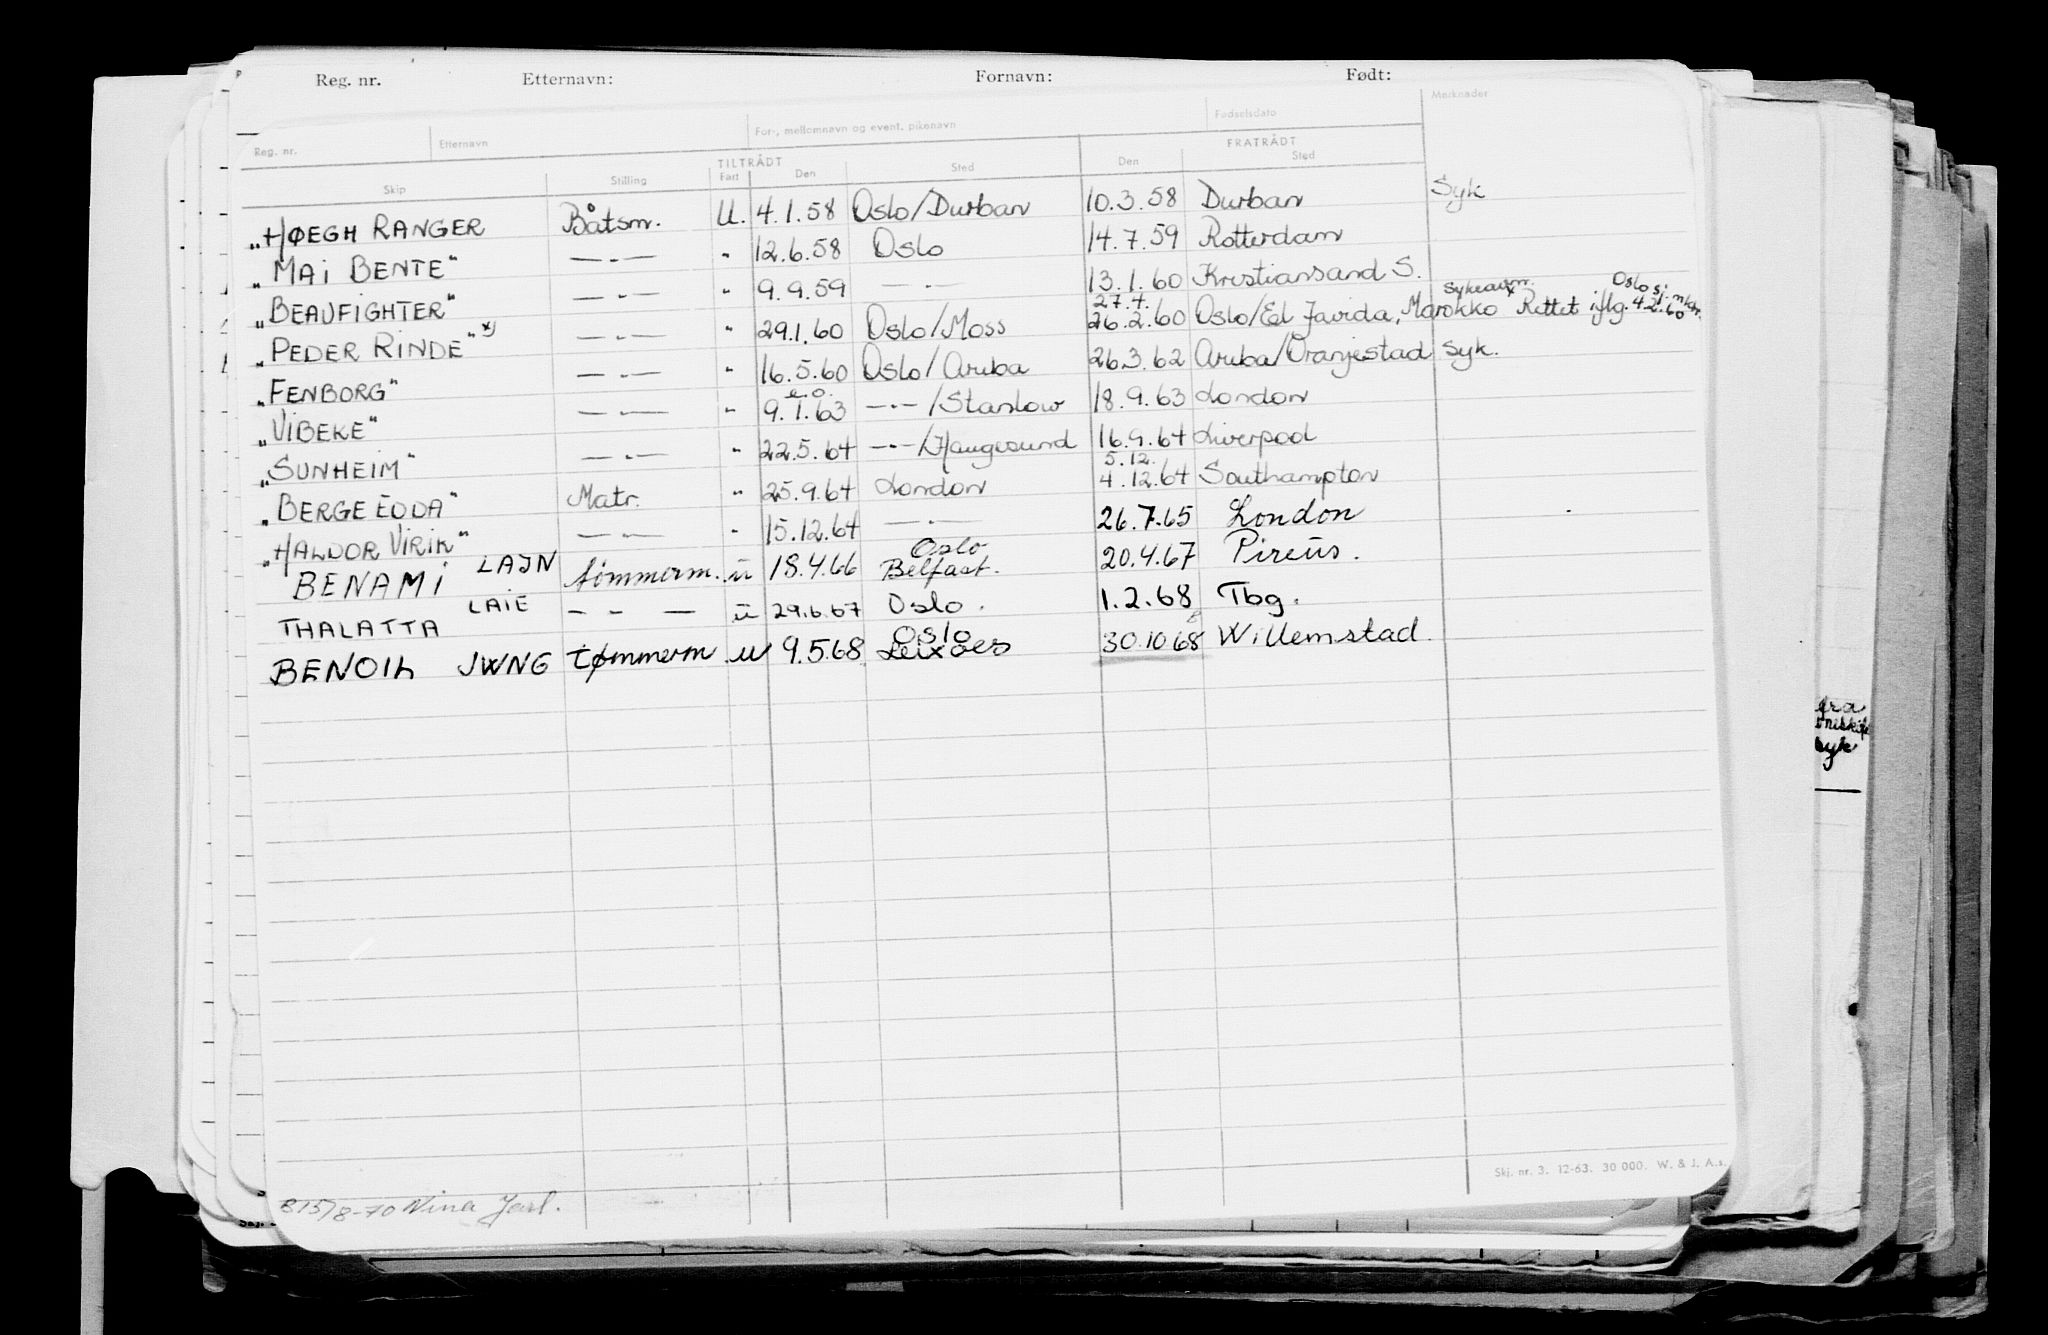 Reg. nr. Etternavn: Fornavn: Født:
Reg. nr. Etternavn For-, mellomnavn og event. pikenavn Fødselsdato Merknader
TILTRÅDT FRATRÅDT
Skip Stilling Fart Den Sted Den Sted
„HØEGH RANGER Båtsm. U. 4.1.58 Oslo/Durban 10.3.58 Durban Syk
„MAI BENTE" —„— " 12.6.58 Oslo 14.7.59 Rotterdam
„BEAUFIGHTER" —„— " 9.9.59 —„— 13.1.60 Kristiansand S.
„PEDER RINDE" x) —„— " 29.1.60 Oslo/Moss 27.4. 26.2.60 Oslo/El Javida, Marokko Sykeavm. x Rettet iflg. Oslo sj.mktr. 4.21.60
„FENBORG" —„— " 16.5.60 Oslo/Aruba 26.3.62 Aruba/Oranjestad Syk.
„VIBEKE" —„— " e.o. 9.1.63 —„—/Stanlow 18.9.63 London
„SUNHEIM" —„— " 22.5.64 —„—/Haugesund 16.9.64 Liverpool
„BERGE EDDA" Matr. " 25.9.64 London 5.12. 4.12.64 Southampton
„HALDOR VIRIK" —„— " 15.12.64 —„— 26.7.65 London
BENAMI LAJN tømmerm. u 18.4.66 Oslo Belfast. 20.4.67 Pireüs.
THALATTA LAIE — - — u 29.6.67 Oslo. 1.2.68 Tbg.
BENOIL JWNG tømmerm u 9.5.68 Oslo Leixoes 30.10.68 Willemstad.
gra
syk
Skj. nr. 3. 12-63. 30 000. W. & J. A.s.
B15/8-70 Nina Jarl.